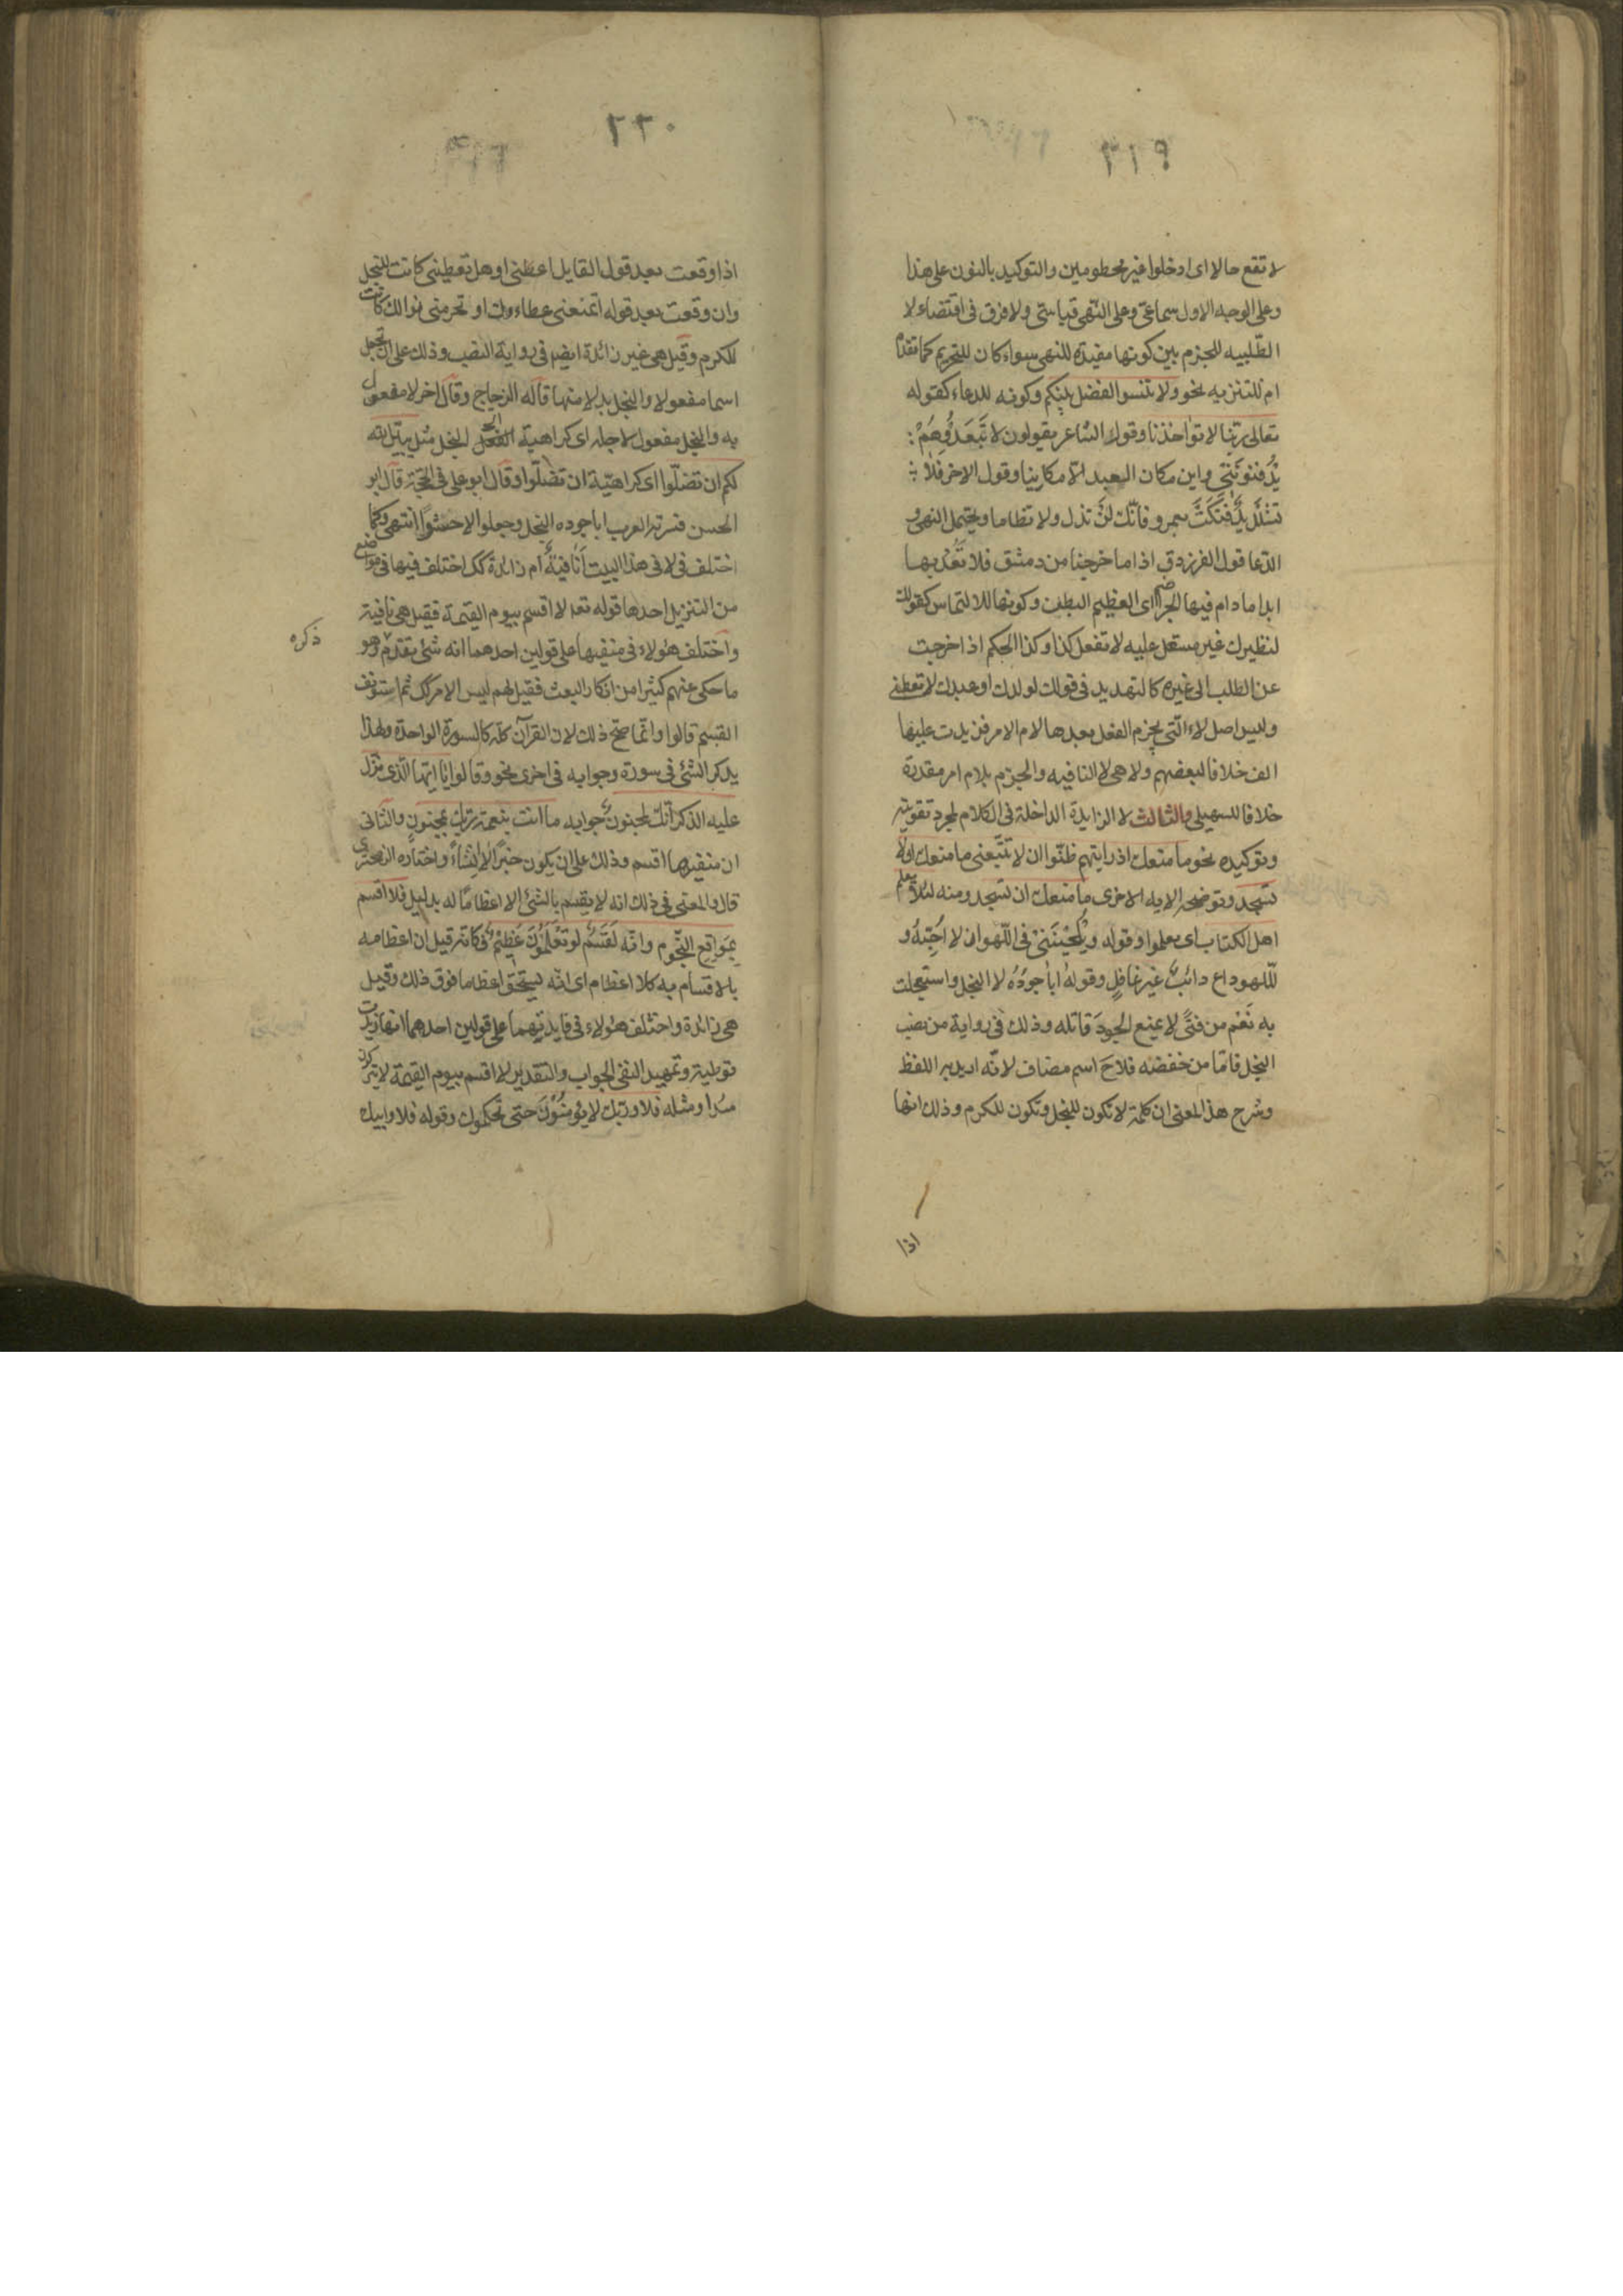 ٣١٩
لا تقع حالا اى ادخلوا غير محطومين والتوكيد بالنون على هذا
وعلى الوجه الاول سماعىّ وعلى النّهى قياسىّ ولا فرق فى اقتضاء لا
الطّلبيه للجزم بين كونها مفيدة للنهى سواء كان للتحريم كما تقدّم
ام للتنزيه نحو ولا تنسوا الفضل بينكم وكونه للدعاء كقوله
تعالى ربّنا لا تؤاخذنا وقول الشاعر يقولون لا تَبعَدْ وهُمْ
يَدْفنونَنى واين مكان البعد الّا مكانيا وقول الاخر فلا
تشلَل يدٌ فتكَتْ بعمرو فانّك لن تذل ولا تظاما ويحتمل النهى و
الدّعا قول الفرزدق اذا ما خرجنا من دمشق فلا نَعُدْ بها
ابدا ما دام فيها الجراضم اى العظيم البطن وكونها للالتماس كقولك
لنظيرك غير مستعل عليه لا تفعل كذا وكذا الحكم اذا خرجت
عن الطلب الى غيره كالتهديد فى قولك لولدك او عبدك لا تعطنى
وليس اصل لاء الّتى يجزم الفعل بعدها لام الامر فزيدت عليها
الف خلافا لبعضهم ولا هى لا النافيه والجزم بلام امر مقدرة
خلافا للسهيلى والثالث لا الزايدة الداخلة فى الكلام لمجرد تقويته
وتوكيده نحو ما منعك اذ رايتهم ضلّوا ان لا تتّبعنى ما منعك اولا
تسجد وتوضحه الايه الاخرى ما منعك ان تسجد ومنه لئلا يعلم
اهل الكتاب اى يعلموا وقوله ويُلحَيْنَنىْ فى اللّهو ان لا احُبّهُ و
للّهو داع دائبٌ غير غافلٍ وقوله اباجودُهُ لا البخل واستعجلت
به نَعَم من فتًى لا يمنع الجودَ قاتله وذلك فى رواية من نصب
البخل فامّا من خفضه فلاحَ اسم مضاف لانّه اريد به اللفظ
وشرح هذا المعنى ان كلمة لا تكون للبخل وتكون للكرم وذلك انها
اذا
٣٢٠
اذا وقعت بعد قول القايل اعطنى او هل تعطينى كانت للبخل
وان وقعت بعد قوله اتمنعنى عطاءوك او تحرمنى نوالك كانت
للكرم وقيل هى غير زائدة ايضم فى رواية النصب وذلك على ان تجعل
اسما مفعولا والبخل بدلا منها قاله الزجاج وقال اخر لا مفعول
به والبخل مفعول لاجله اى كراهية البخل مثل يبيّن الله
لكم ان تضلّوا اى كراهيّة ان تضلّوا وقال ابو على فى الحجّة قال ابو
الحسن فسرته العرب اباجوده البخل وجعلوا لا حشوًا انتهى وكما
اختلف فى لا فى هذا البيت أنافيةٌ أم زائدة كك اختلف فيها فى مواضع
من التنزيل احدها قوله تعه لا اقسم بيوم القيمة فقيل هى نافية
واختلف هؤلاء فى منفيها على قولين احدهما انه شئ تقدّم وهو
ذكره
ما حكى عنهم كثيرا من انكار البعث فقيل لهم ليس الامر كك ثم استونف
القسم قالوا وانّما صحّ ذلك لان القرآن كلّه كالسورة الواحدة ولهذا
يذكر الشئ فى سورة وجوابه فى اخرى نحو وقالوا يا ايّها الّذى نزّل
عليه الذكر انّك لمجنونٌ جوابه ما انت بنعمة ربّك بمجنونٍ والثّانى
ان منفيها اقسم وذلك على ان يكون خبرًا لا إنشاءً واختاره الزمخشرى
قال والمعنى فى ذلك انه لا يقسم بالشئ الا اعظامًا له بدليل فلا اقسم
بمَواقِع النّجُوم وانّه لَقَسَمٌ لو تَعْلَمُونَ عَظِيْمٌ فكانّه قيل ان اعظامه
بالاقسام به كلا اعظام اى انّه يستحقّ اعظاما فوق ذلك وقيل
هى زائدة واختلف هؤلاء فى فايدتهما على قولين احدهما انها زيدت
توطية وتمهيد النفى الجواب والتقدير لا اقسم بيوم القيمة لا يتركون
سُدا ومثله فلا وربّك لا يؤمنُوْنَ حتى تحكموك وقوله فلا وابيك